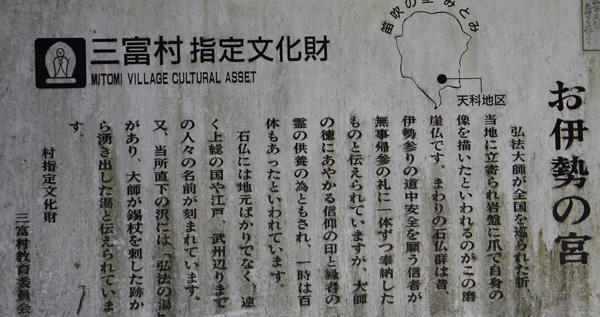 三富村 指定文化財
MITOMI VILLAGE CULTURAL ASSET
笛吹の里みとみ
天科地区
お伊勢の宮
弘法大師が全国を巡られた折、
当地に立寄られ岩盤に爪で自身の
像を描いたといわれるのがこの磨
崖仏です。まわりの石仏群は昔、
伊勢参りの道中安全を願う信者が
無事帰参の礼に一体ずつ奉納した
ものと伝えられていますが、大師
の徳にあやかる信仰の印と縁者の
霊の供養の為ともされ、一時は百
体もあったといわれています。
石仏には地元ばかりでなく、遠
く上総の国や江戸、武州辺りまで
の人々の名前が刻まれています。
又、当所直下の沢には、「弘法の湯」
があり、大師が錫杖を刺した跡か
ら湧き出した湯と伝えられていま
す。
村指定文化財
三富村教育委員会